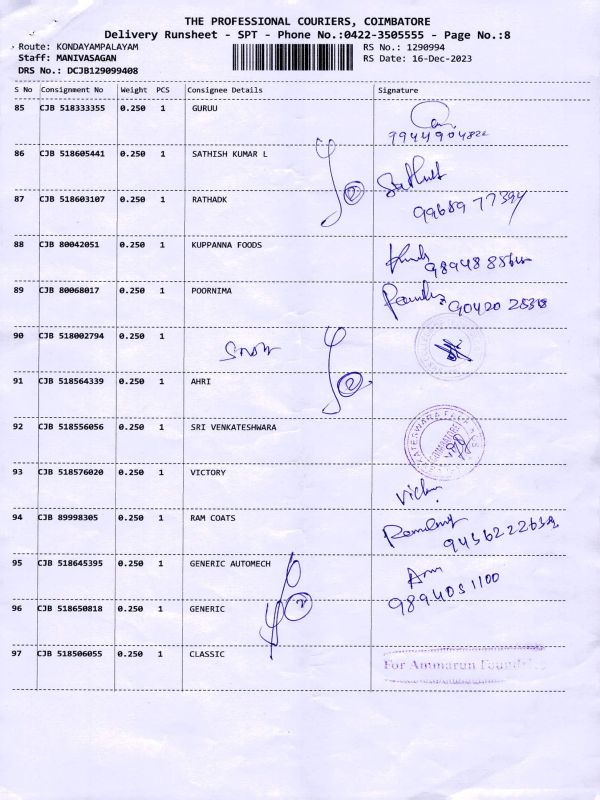 THE PROFESSIONAL COURIERS, COIMBATORE
Delivery Runsheet - SPT - Phone No.:0422-3505555 - Page No.:8
Route: KONDAYAMPALAYAM
RS No.: 1290994
Staff: MANIVASAGAN
RS Date: 16-Dec-2023
DRS No.: DCJB129099408
S No Consignment No Weight PCS Consignee Details Signature
85 CJB 518333355 0.250 1 GURUU
86 CJB 518605441 0.250 1 SATHISH KUMAR L
2
87 CJB 518603107 0.250 1 RATHADK
88 CJB 80042051 0.250 1 KUPPANNA FOODS
89 CJB 80068017 0.250 1 POORNIMA
90 CJB 518002794 0.250 1
91 CJB 518564339 0.250 1 AHRI
2
92 CJB 518556056 0.250 1 SRI VENKATESHWARA
93 CJB 518576020 0.250 1 VICTORY
94 CJB 89998305 0.250 1 RAM COATS
95 CJB 518645395 0.250 1 GENERIC AUTOMECH
9894051100
96 CJB 518650818 0.250 1 GENERIC
2
97 CJB 518506055 0.250 1 CLASSIC
For Ammarun